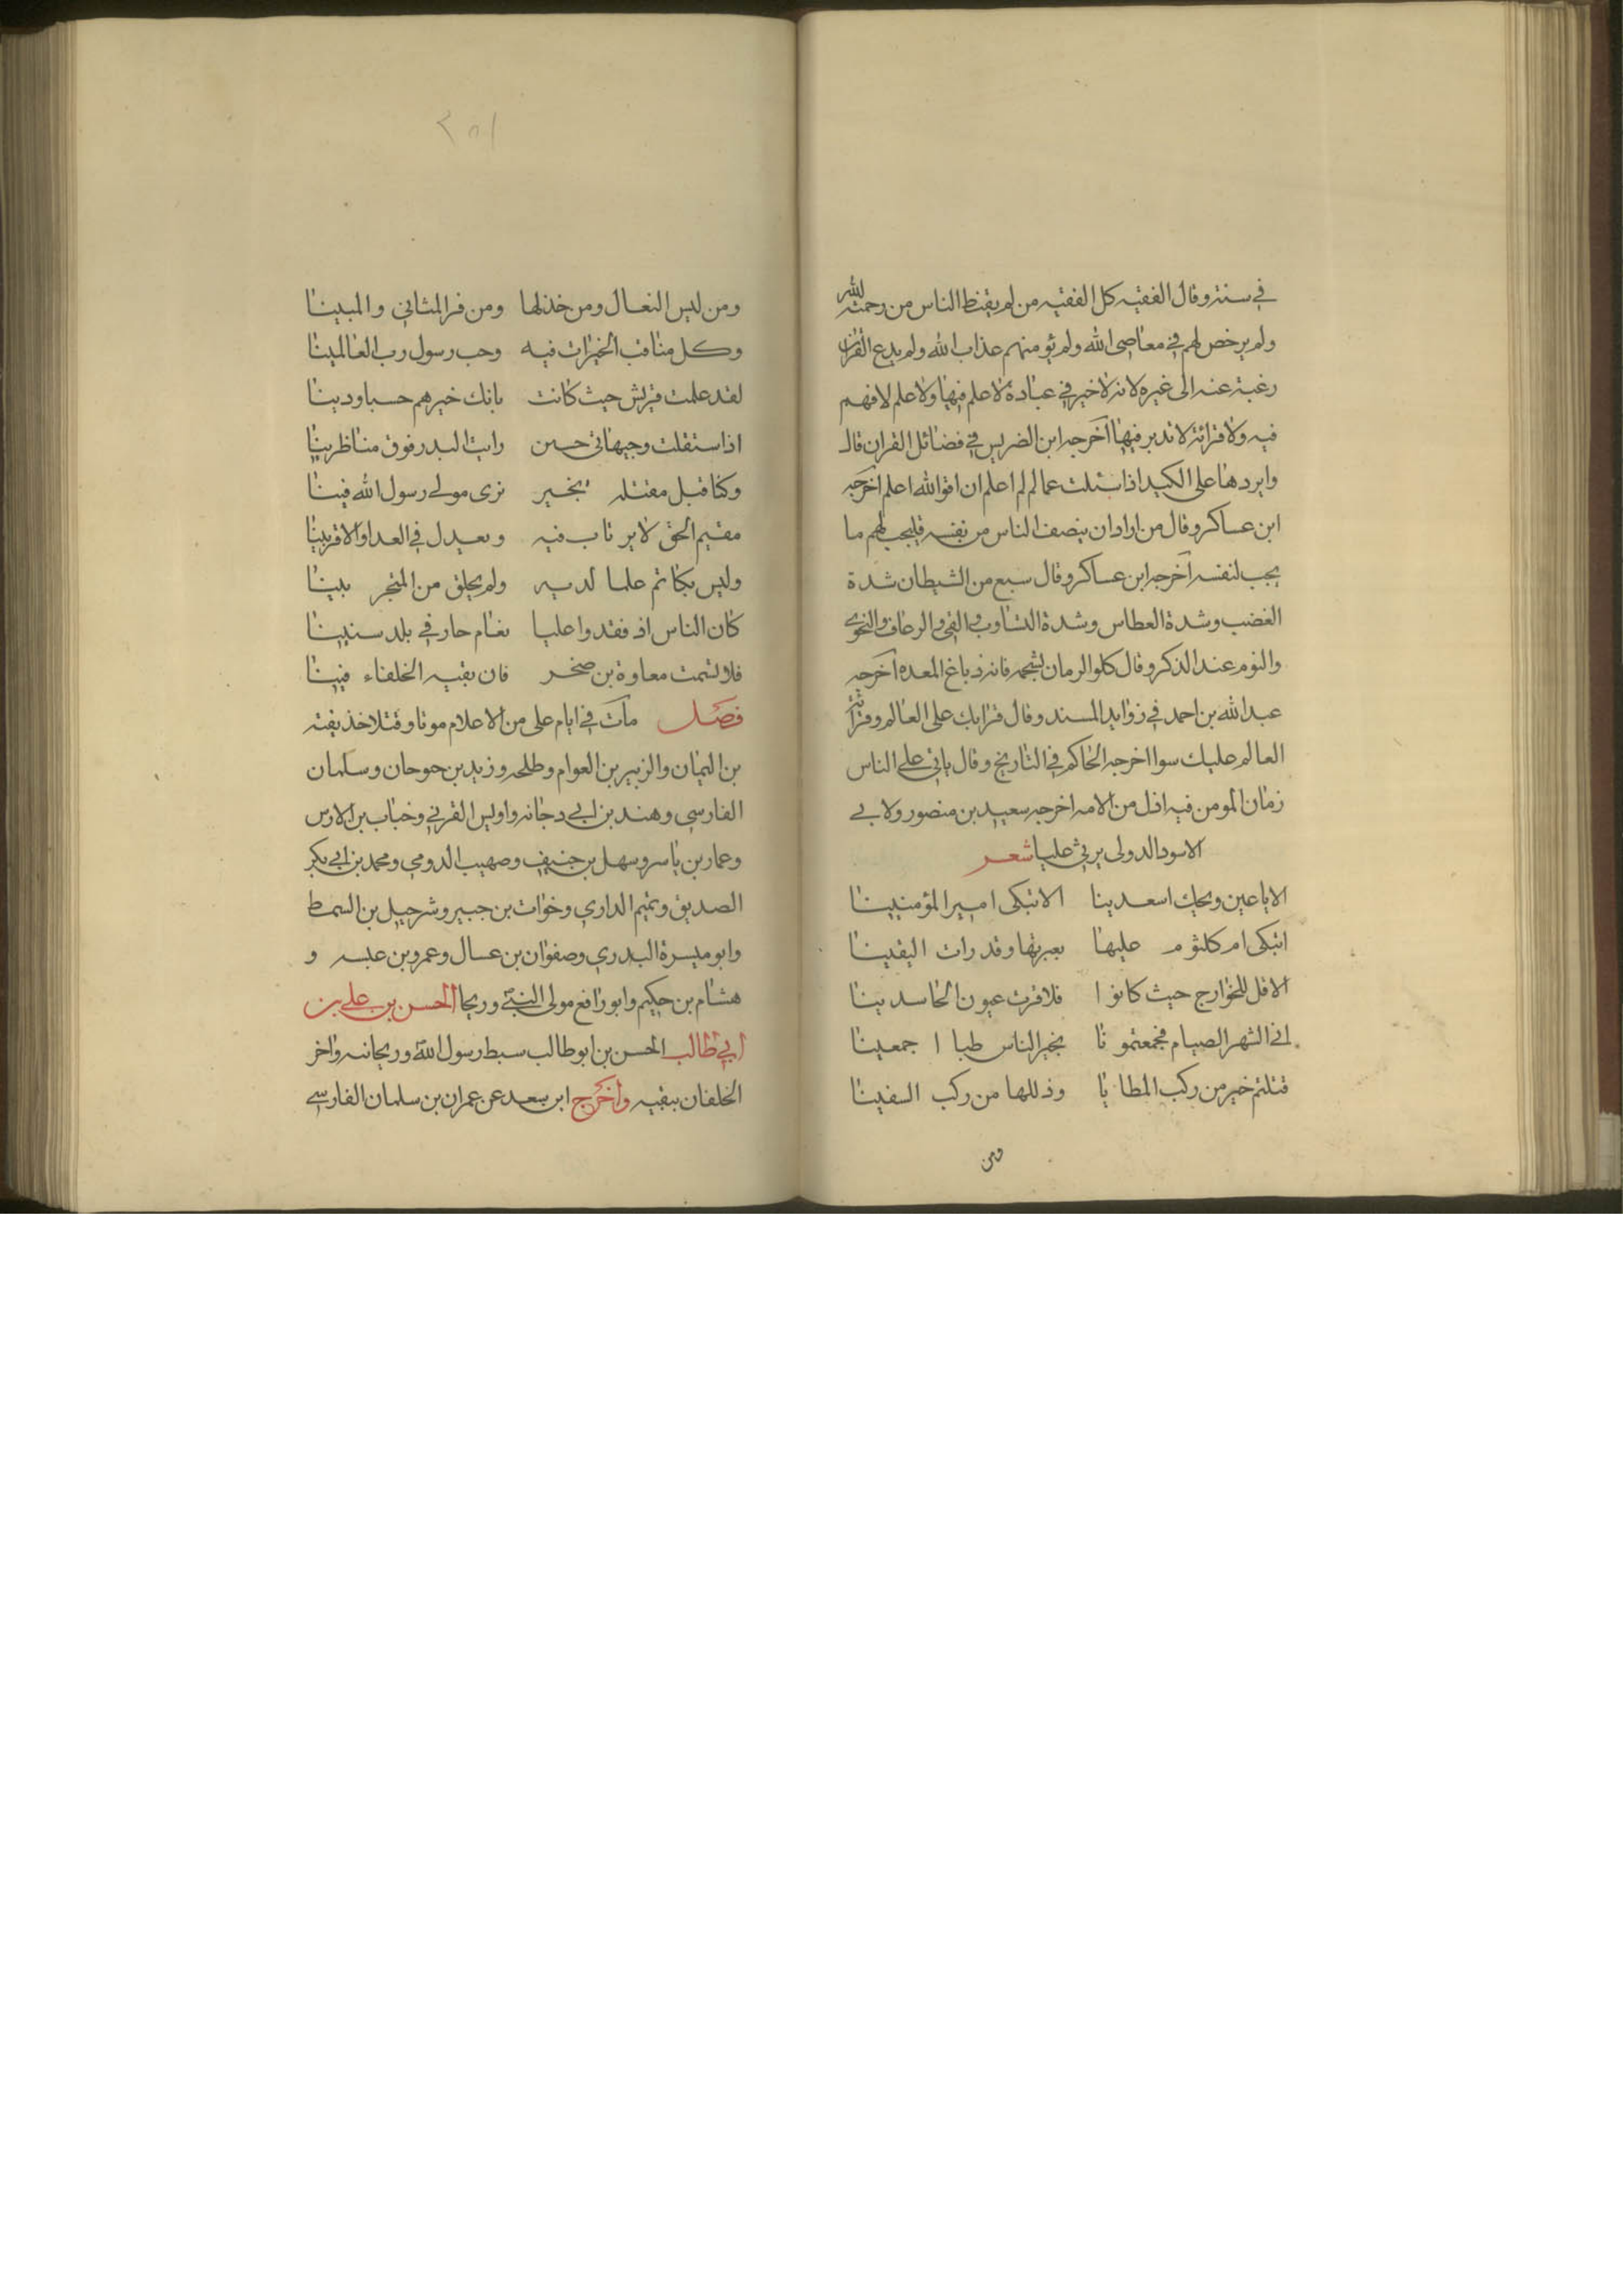 في سنته وقال الفقيه كل الفقيه من لم يقنط الناس من رحمة الله
ولم يرخص لهم في معاصي الله ولم يؤمنهم عذاب الله ولم يدع القران
رغبة عنه الى غيره لانه لا خير في عبادة لا علم فيها ولا علم لا فهم
فيه ولا قرائة لا تدبر فيها اخرجه ابن الضريس في فضائل القران قال
وابردها على الكبد اذا سئلت عما لم اعلم ان اقو الله اعلم اخرجه
ابن عساكر وقال من اراد ان ينصف الناس من نفسه فليحب لهم ما
يحب لنفسه اخرجه ابن عساكر وقال سبع من الشيطان شدة
الغضب وشدة العطاس وشدة التثاوب والقي والرعاف والنجوى
والنوم عند الذكر وقال كلوا الرمان بشحمه فانه دباغ المعده اخرجه
عبد الله بن احمد في زوايد المسند وقال قرابك على العالم وقرائة
العالم عليك سوا اخرجه الحاكم في التاريخ وقال ياتي على الناس
زمان المومن فيه اذل من الامه اخرجه سعيد بن منصور ولابي
الاسود الدولى يرثي عليا شعر
الا يا عين ويحك اسعدينا الا تبكى امير المؤمنينا
اتبكى ام كلثوم عليها بعبرتها وقد رات اليقينا
الا قل للخوارج حيث كانوا فلا قرت عيون الحاسدينا
افي الشهر الصيام فجمعتمونا بخير الناس طبا اجمعينا
قتلتم خير من ركب المطايا وذللها من ركب السفينا
ومن
٢٥١
ومن لبس النعال ومن خذلها ومن قر المثاني والمبينا
وكل مناقب الخيرات فيه وحب رسول رب العالمينا
لقد علمت قريش حيث كانت بانك خيرهم حسبا ودينا
اذا ستقلت وجها حسين رايت البدر فوق مناظرينا
وكنا قبل مقتله بخير نرى مولى رسول الله فينا
مقيم الحق لا يرتاب فيه ويعدل في العدا والاقربينا
وليس بكاتم علما لديه ولم يخلق من المتجر بينا
كان الناس اذ فقدوا عليا نعام حار في بلد سنينا
فلا تشمت معاوة بن صخر فان بقيه الخلفاء فينا
فصل مات في ايام على من الاعلام موتا وقتلا حذيفة
بن اليمان والزبير بن العوام وطلحه وزيد بن حوحان وسلمان
الفارسي وهند بن ابي دجانه واويس القرني وخباب بن الارس
وعمار بن ياسر وسهل بن حنيف وصهيب الدومي ومحمد بن ابي بكر
الصديق وتميم الداري وخوات بن جبير وشرحبيل بن السمط
وابو ميسرة البدري وصفوان بن عسال وعمرو بن عبسه و
هشام بن حكيم وابو رافع مولى النبي وريحا الحسن بن علي بن
ابي طالب الحسن بن ابو طالب سبط رسول الله وريحانه واخر
الخلفان ببقيه واخرج ابن سعد عن عمران بن سلمان الفارسي